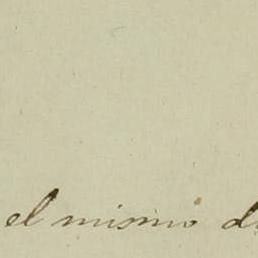 el mismo d